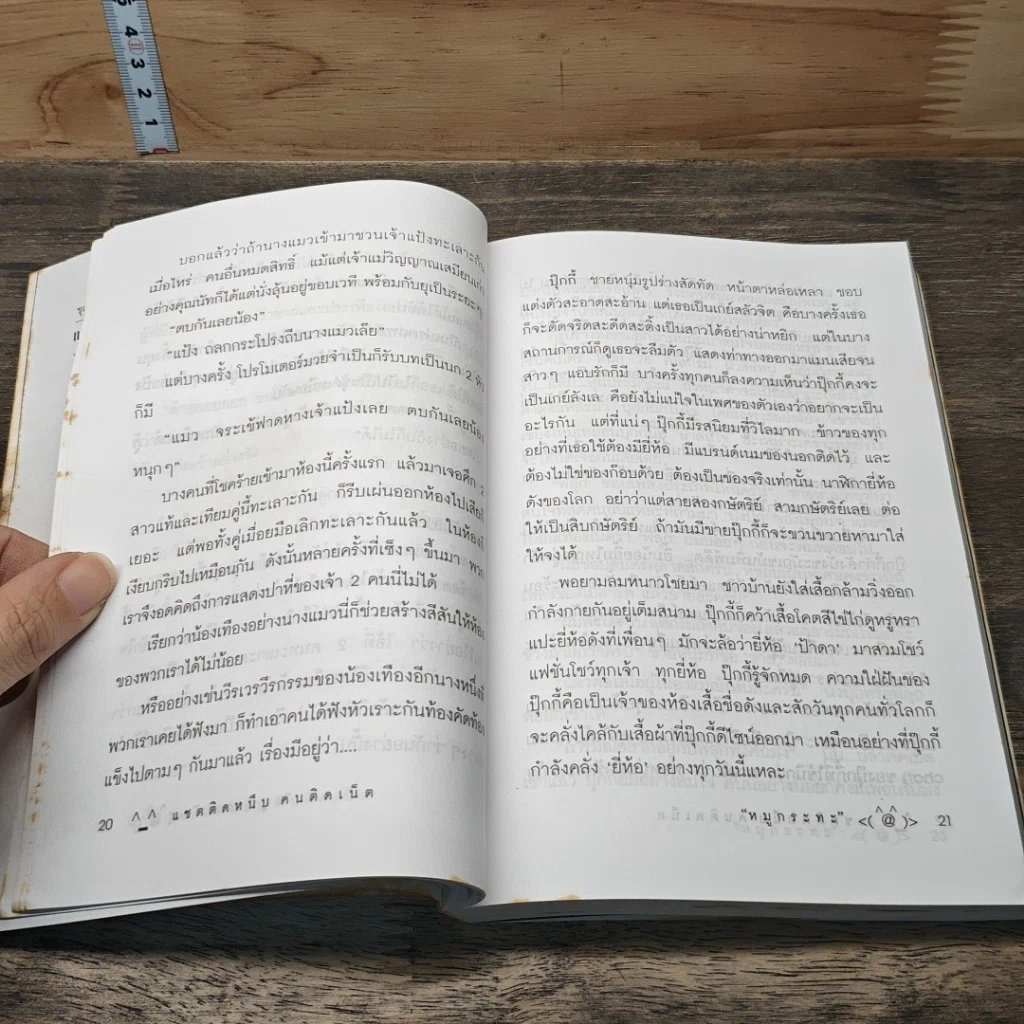 5
4
3
2
1
บอกแล้วว่าถ้านางแมวเข้ามาชวนเจ้าแป้งทะเลาะกัน
เมื่อไหร่ คนอื่นหมดสิทธิ์ แม้แต่เจ้าแม่วิญญาณเสมียนเก่า
อย่างคุณนัทก็ได้แต่นั่งลุ้นอยู่ขอบเวที พร้อมกับยุเป็นระยะๆ
"ตบกันเลยน้อง"
"แป้ง ถลกกระโปรงถีบนางแมวเลีย"
แต่บางครั้ง โปรโมเตอร์มวยจำเป็นก็รับบทเป็นนก 2 หัว
ก็มี
"แมว จระเข้ฟาดหางเจ้าแป้งเลย ตบกันเลยน้อง
หนุกๆ"
บางคนที่โชคร้ายเข้ามาห้องนี้ครั้งแรก แล้วมาเจอศึก 2
สาวแท้และเทียมคู่นี้ทะเลาะกัน ก็รีบเผ่นออกห้องไปเสีย
เยอะ แต่พอทั้งคู่เมื่อยมือเลิกทะเลาะกันแล้ว ในห้องก็
เงียบกริบไปเหมือนกัน ดังนั้นหลายครั้งที่เซ็งๆ ขึ้นมา พวก
เราจึงอดคิดถึงการแสดงปาหี่ของเจ้า 2 คนนี่ไม่ได้
เรียกว่าน้องเทืองอย่างนางแมวนี่ก็ช่วยสร้างสีสันให้ห้อง
ของพวกเราได้ไม่น้อย
หรืออย่างเช่นวีรเวรวีรกรรมของน้องเทืองอีกนางหนึ่งที่
พวกเราเคยได้ฟังมา ก็ทำเอาคนได้ฟังหัวเราะกันท้องคัดท้อง
แข็งไปตามๆ กันมาแล้ว เรื่องมีอยู่ว่า....
20 ^_^ แชตติดหนึบ คนติดเน็ต
ปุ๊กกี้ ชายหนุ่มรูปร่างสัดทัด หน้าตาหล่อเหลา ชอบ
แต่งตัวสะอาดสะอ้าน แต่เธอเป็นเกย์สลัวจิต คือบางครั้งเธอ
ก็จะดัดจริตสะดีดสะดิ้งเป็นสาวได้อย่างน่าหยิก แต่ในบาง
สถานการณ์ก็ดูเธอจะลืมตัว แสดงท่าทางออกมาแมนเสียจน
สาวๆ แอบรักก็มี บางครั้งทุกคนก็ลงความเห็นว่าปุ๊กกี้คงจะ
เป็นเกย์ลังเล คือยังไม่แน่ใจในเพศของตัวเองว่าอยากจะเป็น
อะไรกัน แต่ที่แน่ๆ ปุ๊กกี้มีรสนิยมที่วิไลมาก ข้าวของทุก
อย่างที่เธอใช้ต้องมียี่ห้อ มีแบรนด์เนมของนอกติดไว้ และ
ต้องไม่ใช่ของก๊อบด้วย ต้องเป็นของจริงเท่านั้น นาฬิกายี่ห้อ
ดังของโลก อย่าว่าแต่สายสองกษัตริย์ สามกษัตริย์เลย ต่อ
ให้เป็นสิบกษัตริย์ ถ้ามันมีขายปุ๊กกี้ก็จะขวนขวายหามาใส่
ให้จงได้
พอยามลมหนาวโชยมา ชาวบ้านยังใส่เสื้อกล้ามวิ่งออก
กำลังกายกันอยู่เต็มสนาม ปุ๊กกี้ก็คว้าเสื้อโคตสีไข่ไก่ดูหรูหรา
แปะยี่ห้อดังที่เพื่อนๆ มักจะล้อว่ายี่ห้อ 'ป้าดา' มาสวมโชว์
แฟชั่นโชว์ทุกเจ้า ทุกยี่ห้อ ปุ๊กกี้รู้จักหมด ความใฝ่ฝันของ
ปุ๊กกี้คือเป็นเจ้าของห้องเสื้อชื่อดังและสักวันทุกคนทั่วโลกก็
จะคลั่งไคล้กับเสื้อผ้าที่ปุ๊กกี้ดีไซน์ออกมา เหมือนอย่างที่ปุ๊กกี้
กำลังคลั่ง 'ยี่ห้อ' อย่างทุกวันนี้แหละ
"หมูกระทะ" <(^@^)> 21